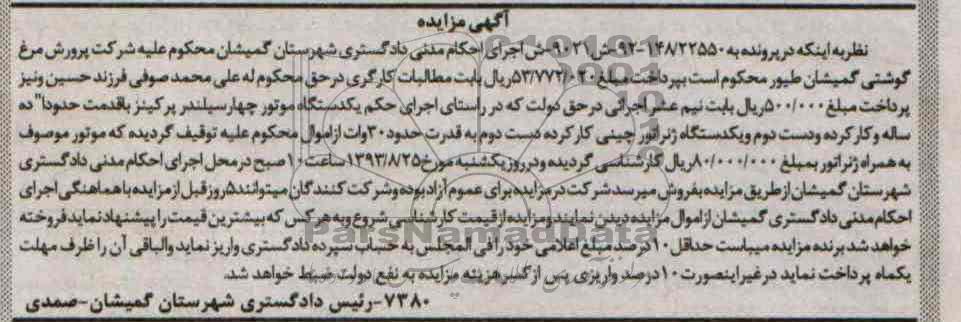 آگهی مزایده
نظر به اینکه در پرونده به ۱۴۸/۲۲۵۵۰-۹۲-ش ۹۰۲۱-ش اجرای احکام مدنی دادگستری شهرستان گمیشان محکوم علیه شرکت پرورش مرغ
گوشتی گمیشان طیور محکوم است بپرداخت مبلغ ۵۳/۷۷۲/۰۲۰ریال بابت مطالبات کارگری در حق محکوم له علی محمد صوفی فرزند حسین و نیز
پرداخت مبلغ ۵۰۰/۰۰۰ریال بابت نیم عشر اجرائی در حق دولت که در راستای اجرای حکم یکدستگاه موتور چهار سیلندر پرکینز باقدمت حدودا" ده
ساله و کارکرده ودست دوم ویکدستگاه ژنراتور چینی کارکرده دست دوم به قدرت حدود ۳۰وات ازاموال محکوم علیه توقیف گردیده که موتور موصوف
به همراه ژنراتور بمبلغ ۸۰/۰۰۰/۰۰۰ریال کارشناسی گردیده ودرروز یکشنبه مورخ ۱۳۹۳/۸/۲۵ساعت ۱۰صبح درمحل اجرای احکام مدنی دادگستری
شهرستان گمیشان ازطریق مزایده بفروش میرسد شرکت در مزایده برای عموم آزاد بوده وشرکت کنندگان میتوانند ۵روز قبل از مزایده با هماهنگی اجرای
احکام مدنی دادگستری گمیشان ازاموال مزایده دیدن نمایند و مزایده از قیمت کارشناسی شروع و به هر کس که بیشترین قیمت را پیشنهاد نماید فروخته
خواهد شد برنده مزایده میبایست حداقل ۱۰درصد مبلغ اعلامی خود را فی المجلس به حساب سپرده دادگستری واریز نماید والباقی آن را ظرف مهلت
یکماه پرداخت نماید در غیر اینصورت ۱۰درصد واریزی پس از کسر هزینه مزایده به نفع دولت ضبط خواهد شد.
۷۳۸۰-رئیس دادگستری شهرستان گمیشان-صمدی
ParsNamadData